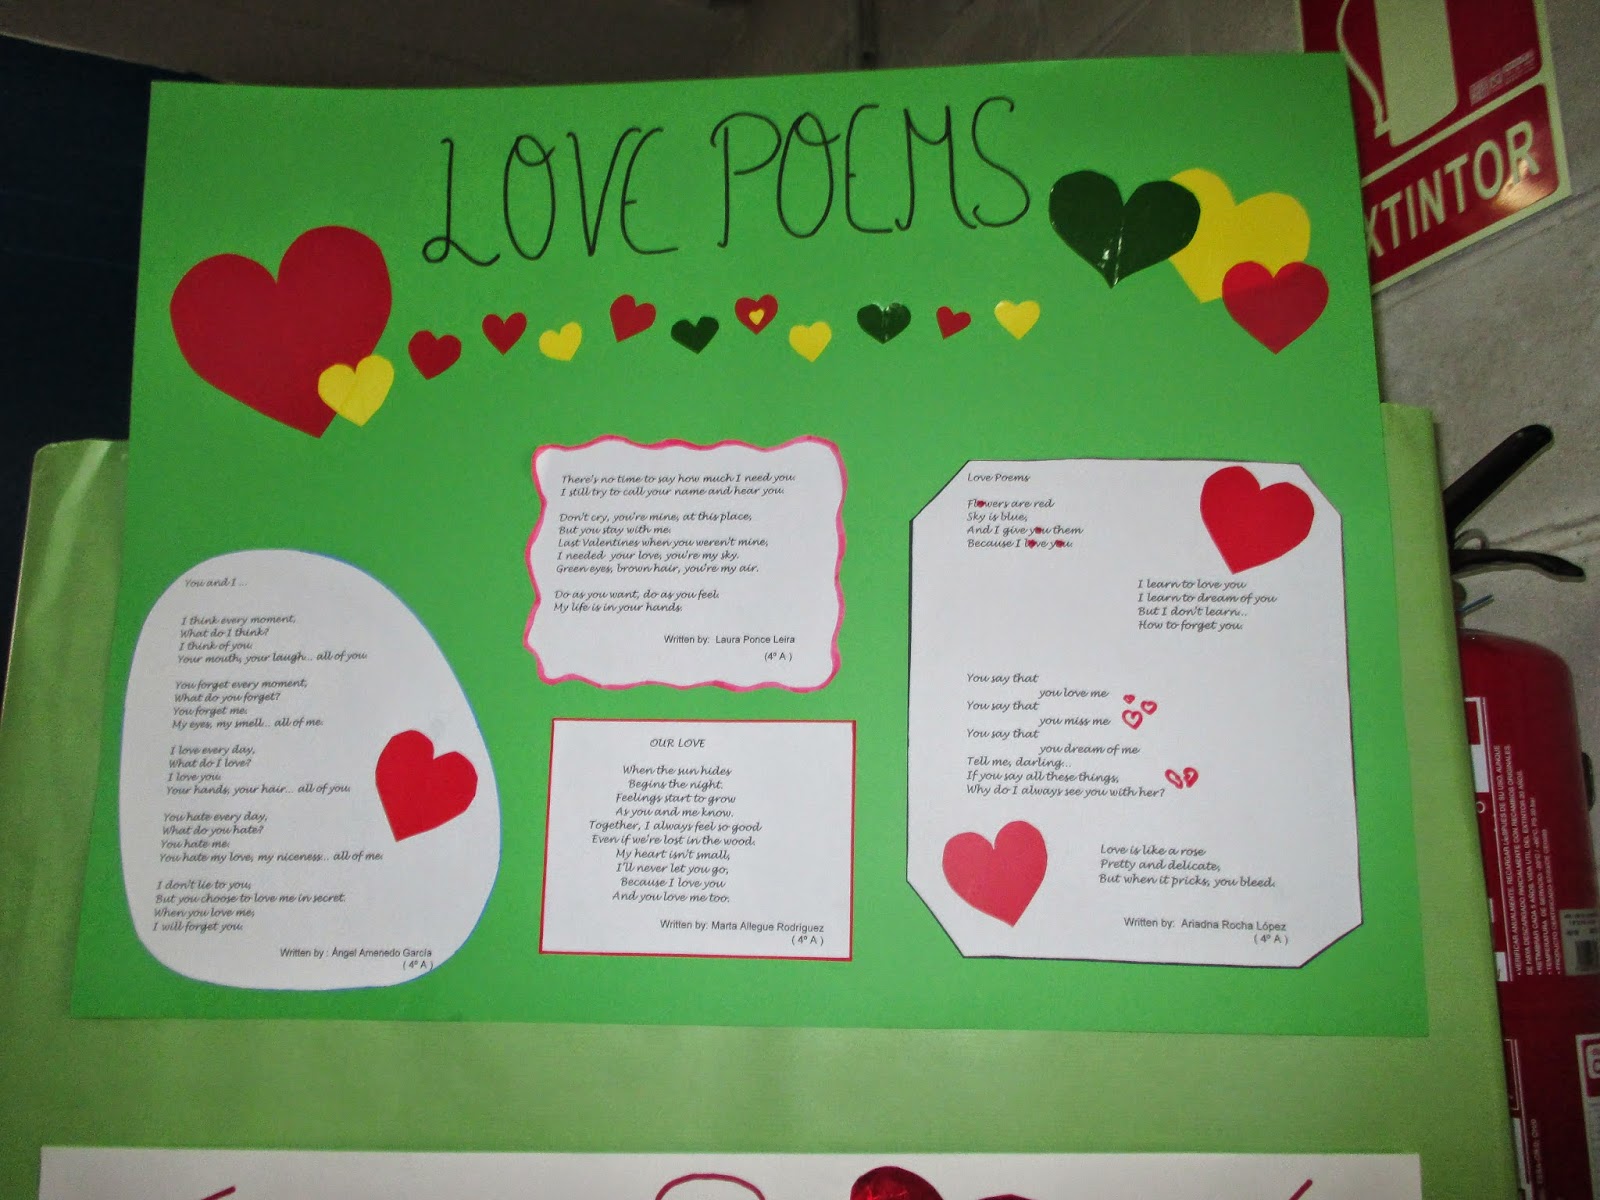 LOVE POEMS
EXTINTOR
You and I ...
I think every moment,
What do I think?
I think of you.
Your mouth, your laugh... all of you.
You forget every moment,
What do you forget?
You forget me.
My eyes, my smell... all of me.
I love every day,
What do I love?
I love you.
Your hands, your hair... all of you.
You hate every day,
What do you hate?
You hate me.
You hate my love, my niceness... all of me.
I don't lie to you,
But you choose to love me in secret.
When you love me,
I will forget you.
Written by : Ángel Amenedo García
( 4º A )
There's no time to say how much I need you.
I still try to call your name and hear you.
Don't cry, you're mine, at this place,
But you stay with me.
Last Valentines when you weren't mine,
I needed your love, you're my sky.
Green eyes, brown hair, you're my air.
Do as you want, do as you feel.
My life is in your hands.
Written by: Laura Ponce Leira
(4º A )
OUR LOVE
When the sun hides
Begins the night.
Feelings start to grow
As you and me know.
Together, I always feel so good
Even if we're lost in the wood.
My heart isn't small,
I'll never let you go,
Because I love you
And you love me too.
Written by: Marta Allegue Rodríguez
( 4º A )
Love Poems
Flowers are red
Sky is blue,
And I give you them
Because I love you.
I learn to love you
I learn to dream of you
But I don't learn...
How to forget you.
You say that
you love me
You say that
you miss me
You say that
you dream of me
Tell me, darling...
If you say all these things,
Why do I always see you with her?
Love is like a rose
Pretty and delicate,
But when it pricks, you bleed.
Written by: Ariadna Rocha López
( 4º A )